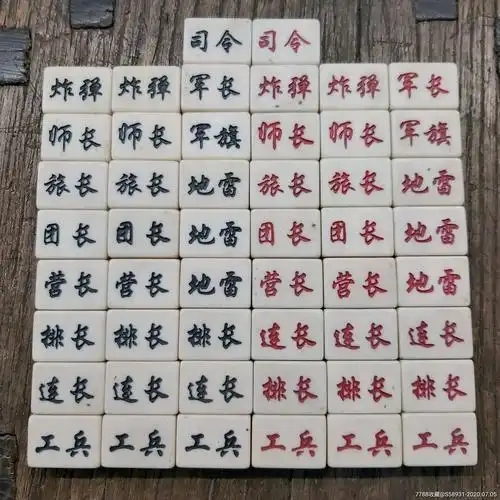 司令 司令
炸弹 炸弹 军长 炸弹 炸弹 军长
师长 师长 军旗 师长 师长 军旗
旅长 旅长 地雷 旅长 旅长 地雷
团长 团长 地雷 团长 团长 地雷
营长 营长 地雷 营长 营长 地雷
排长 排长 排长 连长 连长 连长
连长 连长 连长 排长 排长 排长
工兵 工兵 工兵 工兵 工兵 工兵
7788收藏@S58931-2020.07.05